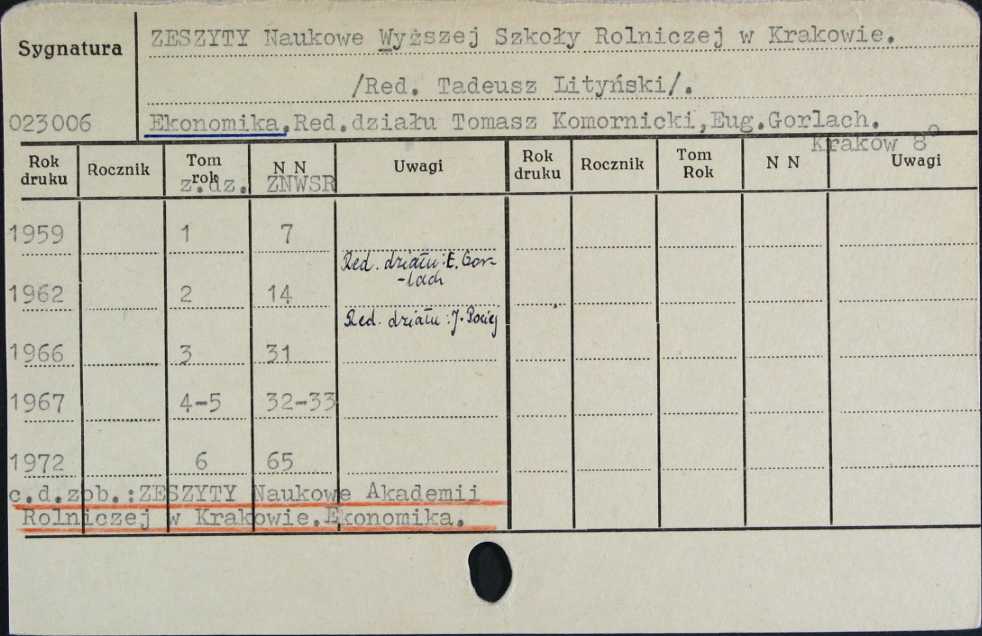 Sygnatura
ZESZYTY Naukowe Wyższej Szkoły Rolniczej w Krakowie.
/Red. Tadeusz Lityński/.
023006 Ekonomika.Red.działu Tomasz Komornicki,Eug.Gorlach.
Kraków 8°
Rok druku Rocznik Tom rok N N Uwagi Rok druku Rocznik Tom Rok N N Uwagi
z.dz. ZNWSR
1959 1 7
Red. działu: E. Gor-
-lach
1962 2 14
Red. działu: J.
1966 3 31
1967 4-5 32-33
1972 6 65
c.d.zob.:ZESZYTY Naukowe Akademii
Rolniczej w Krakowie.Ekonomika.